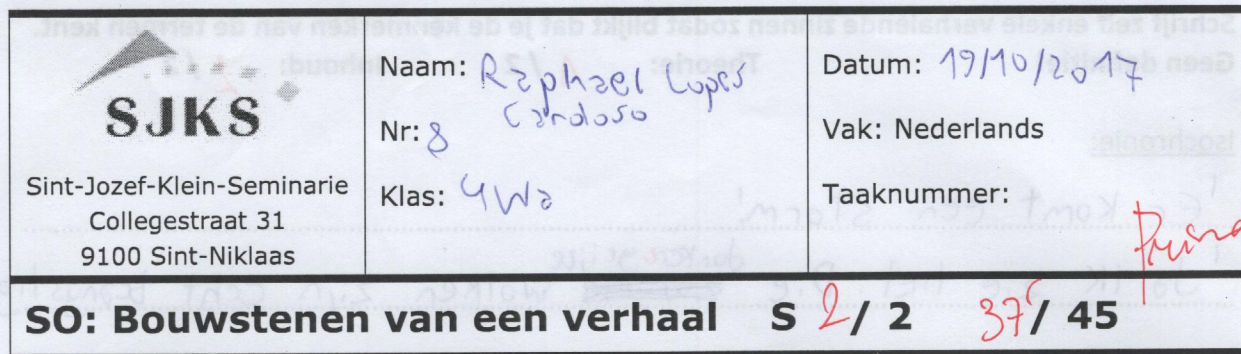 SJKS
Sint-Jozef-Klein-Seminarie
Collegestraat 31
9100 Sint-Niklaas
Naam: Raphael Lopes
Cardoso
Nr: 8
Klas: 4Wa
Datum: 19/10/2017
Vak: Nederlands
Taaknummer:
Prima
SO: Bouwstenen van een verhaal S 2/ 2 37/ 45